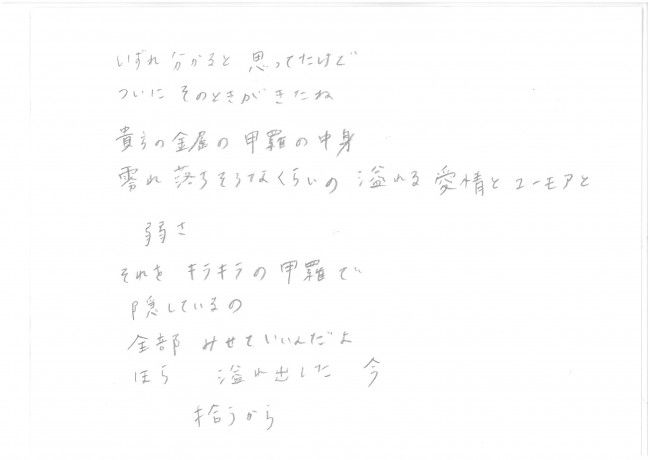 いずれ 分かると 思ってたけど
ついに そのときがきたね
貴方の金属の甲羅の中身
零れ 落ちそうなくらいの 溢れる 愛情と ユーモアと
弱さ
それを キラキラの 甲羅で
隠しているの
全部 みせていいんだよ
ほら 溢れ出した 今
拾うから